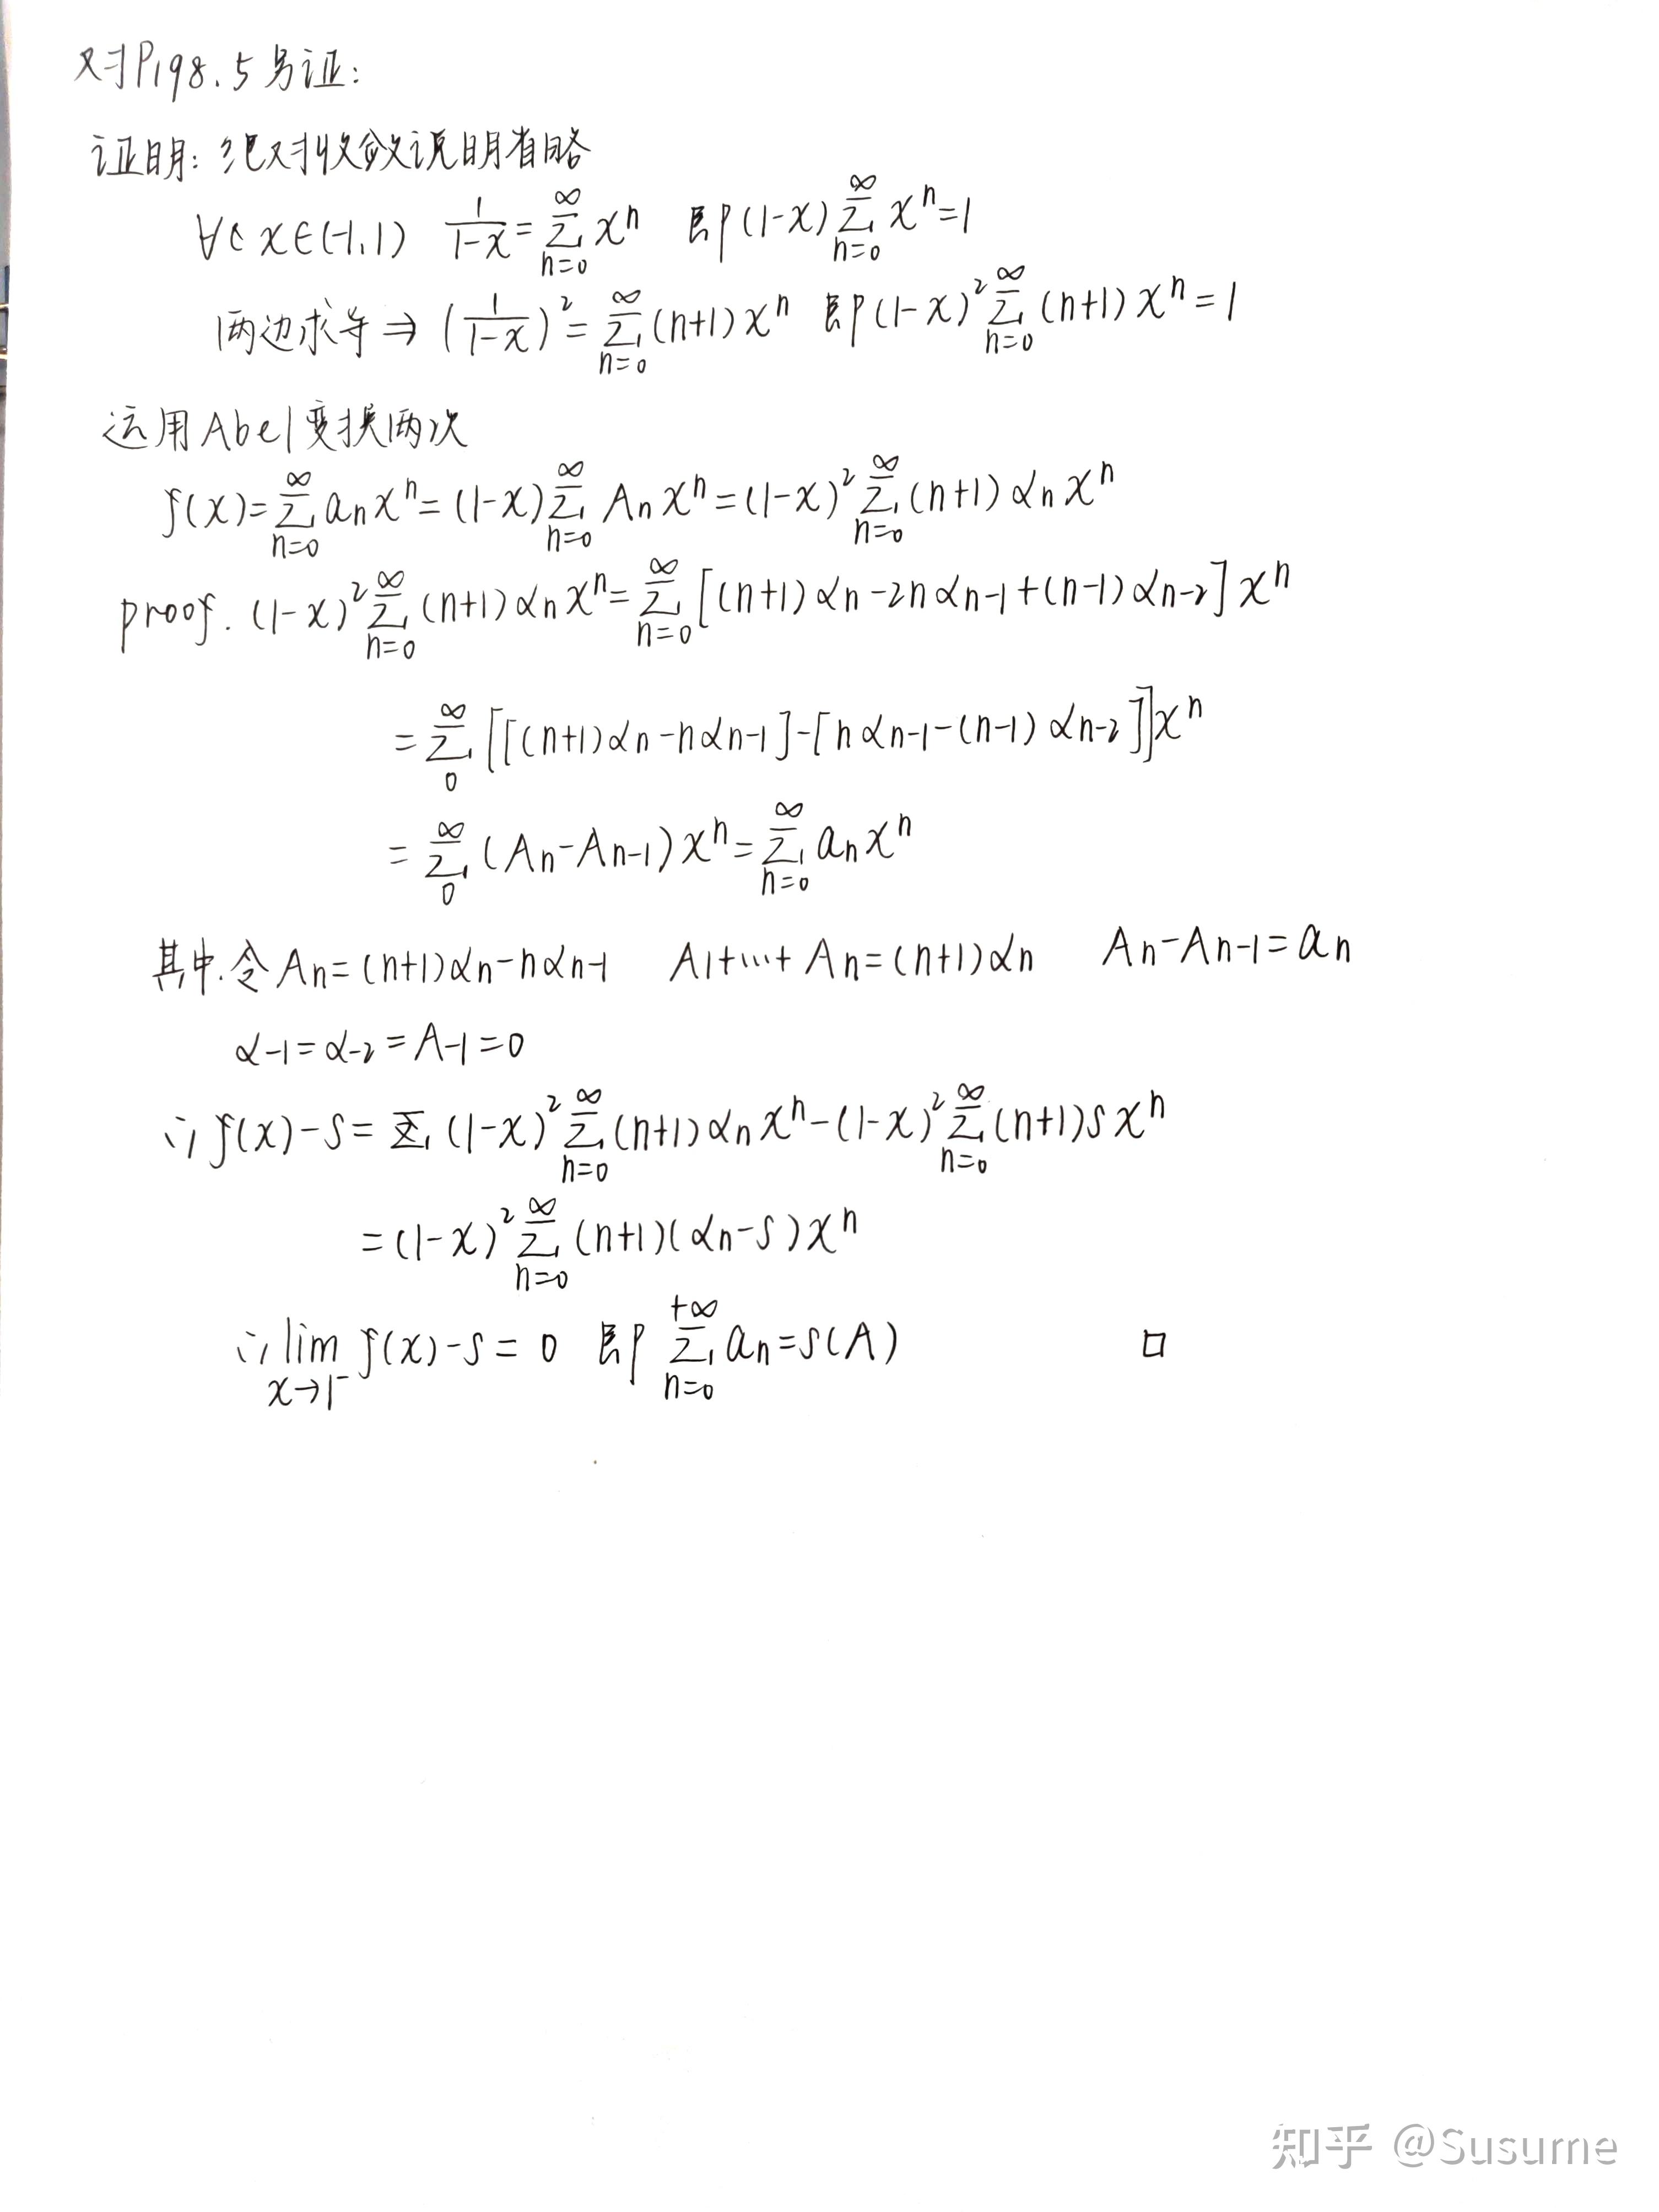 对P198.5另证:
证明: 绝对收敛说明省略
∀ x∈(-1,1) 1/(1-x)=∑_{n=0}^{∞} x^n 即(1-x)∑_{n=0}^{∞} x^n=1
两边求导⇒(1/(1-x))^2=∑_{n=0}^{∞}(n+1)x^n 即(1-x)^2∑_{n=0}^{∞}(n+1)x^n=1
运用Abel变换两次
f(x)=∑_{n=0}^{∞} a_n x^n=(1-x)∑_{n=0}^{∞} A_n x^n=(1-x)^2∑_{n=0}^{∞}(n+1)α_n x^n
proof. (1-x)^2∑_{n=0}^{∞}(n+1)α_n x^n=∑_{n=0}^{∞}[(n+1)α_n-2nα_{n-1}+(n-1)α_{n-2}]x^n
=∑_0^{∞}[[(n+1)α_n-nα_{n-1}]-[nα_{n-1}-(n-1)α_{n-2}]]x^n
=∑_0^{∞}(A_n-A_{n-1})x^n=∑_{n=0}^{∞} a_n x^n
其中.令A_n=(n+1)α_n-nα_{n-1} A_1+...+A_n=(n+1)α_n A_n-A_{n-1}=a_n
α_{-1}=α_{-2}=A_{-1}=0
∴f(x)-S=(1-x)^2∑_{n=0}^{∞}(n+1)α_n x^n-(1-x)^2∑_{n=0}^{∞}(n+1)S x^n
=(1-x)^2∑_{n=0}^{∞}(n+1)(α_n-S)x^n
∴lim_{x→1^-} f(x)-S=0 即∑_{n=0}^{+∞} a_n=S(A) □
知乎 @Susurne